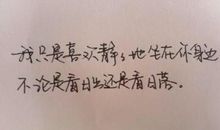 我只是喜欢静静地坐在你身边
不论是看日出还是看日落。